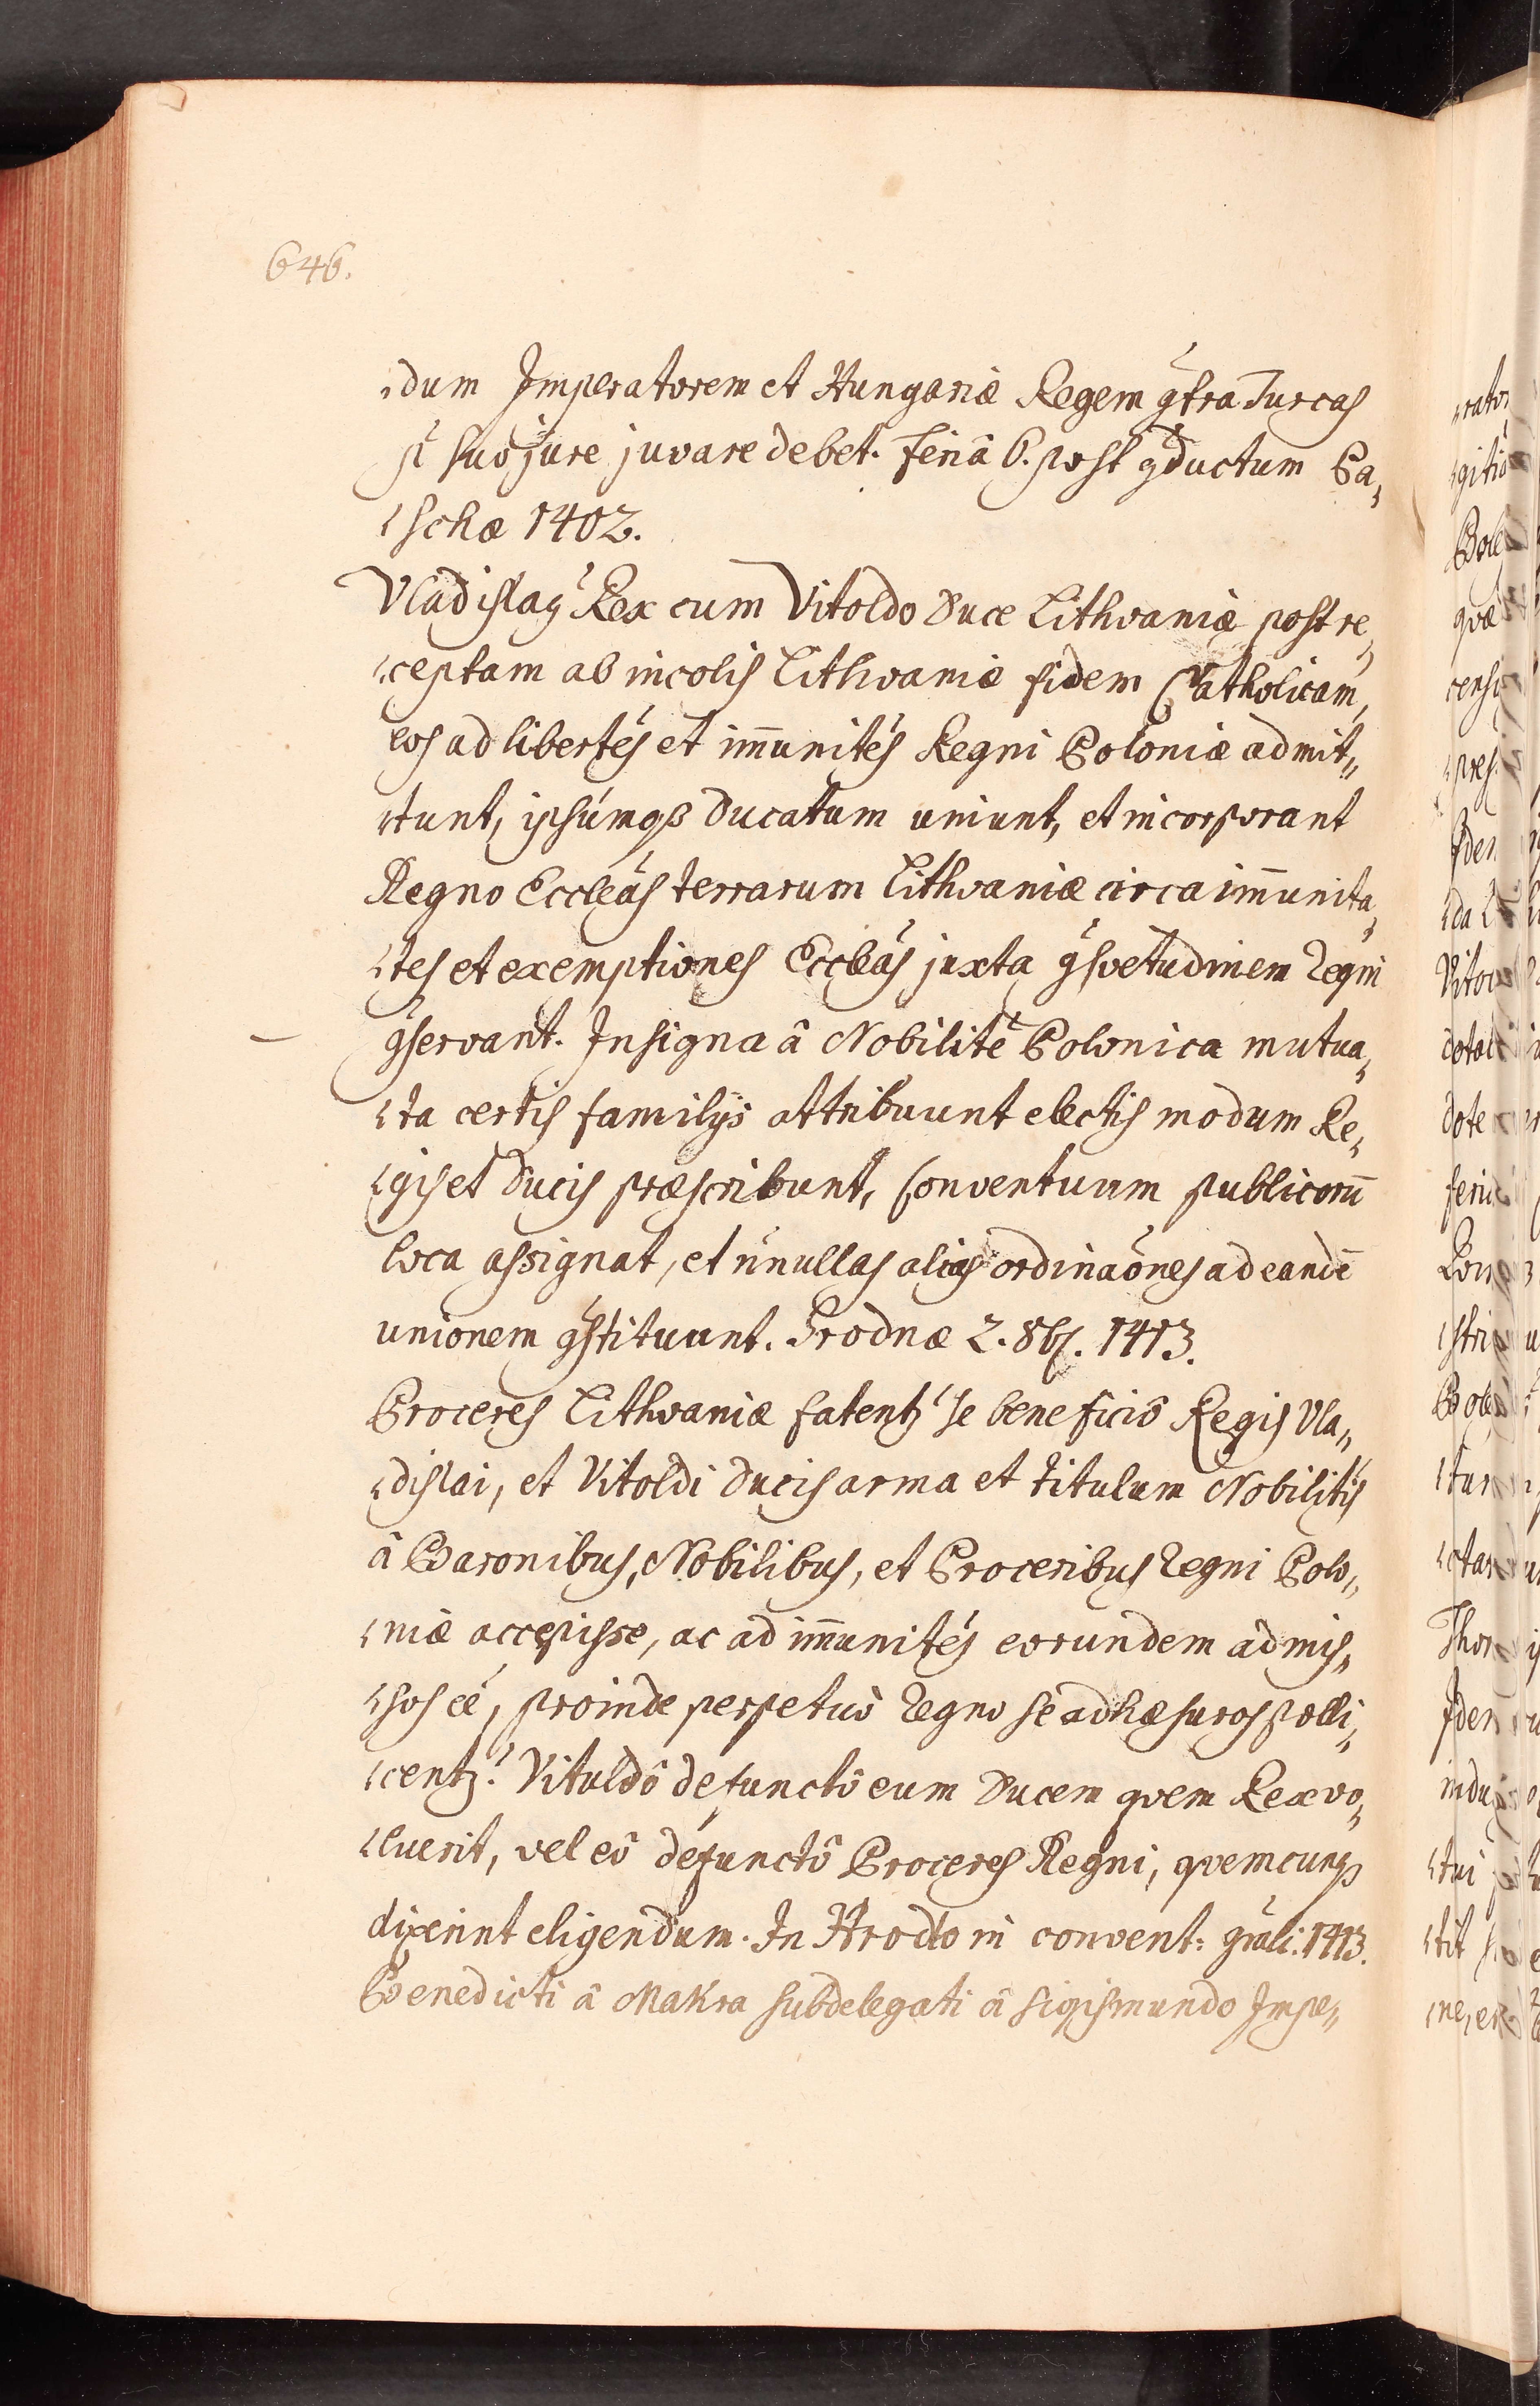 646.
dum Imperatorem et Hungariæ Regem gtra Turcas
suo jure juvare debet. Feriâ 6. post gductum Pa„
schæ 1402.
Vladislag Rex cum Vitoldo Duce Lithvaniæ post re„
ceptam ab incolis Lithvaniæ fidem Catholicam,
eos ad libertés et im̄unités Regni Poloniæ admit„
tunt, ipsumqꝫ Ducatum uniunt, et incorporant
Regno Eccleãs terrarum Lithvaniæ circa im̄unita„
tes et exemptiones Eccleãs juxta gsvetudinem Regni
gservant. Insigna â Nobilite Polonica mutua„
ta certis familijs attribuunt electis modum Re„
gis et Ducis præscribunt, Conventuum publicorū
loca assignat, et nnullas alias ordinaones ad eandē
unionem gstituunt. Grodnæ 2. 8br. 1413.
Proceres Lithvaniæ fatentz se beneficiô Regis Vla„
dislai, et Vitoldi Ducis arma et titulum Nobilitis
â Baronibus, Nobilibus, et Proceribus Regni Polo„
niæ accepisse, ac ad im̄unités eorundem admis„
sos ee, proinde perpetuò Regno se adhæsuros polli„
centz. Vituldô defunctô eum Ducem qvem Rex vo„
luerit, vel eô defunctô Proceres Regni, qvemcunqꝫ
dixerint eligendum. In Hrodlo in convent: gnali: 1413.
Benedicti â Makra subdelegati â Sigismundo Impe„